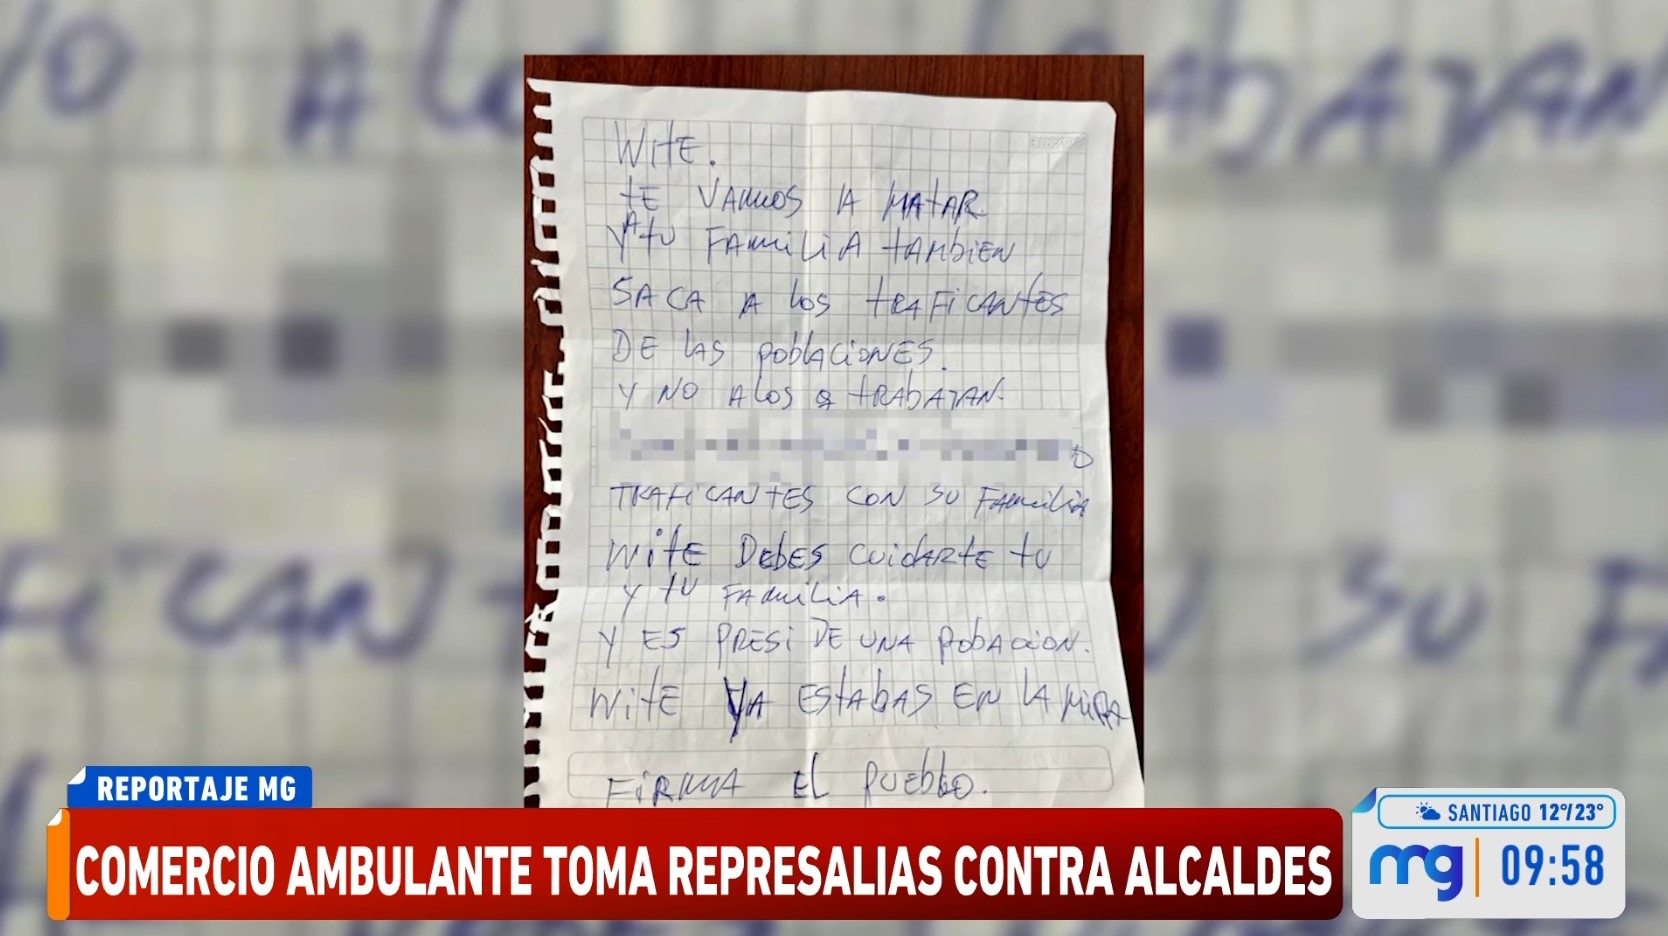 WITE.
TE VAMOS A MATAR
Y A TU FAMILIA TAMBIEN
SACA A LOS TRAFICANTES
DE LAS POBLACIONES.
Y NO A LOS Q TRABAJAN.
TRAFICANTES CON SU FAMILIA
WITE DEBES CUIDARTE TU
Y TU FAMILIA.
Y ES PRESI DE UNA POBACION.
WITE YA ESTABAS EN LA MIRA
FIRMA EL PUEBLO.
REPORTAJE MG
COMERCIO AMBULANTE TOMA REPRESALIAS CONTRA ALCALDES
SANTIAGO 12°/23°
mg 09:58